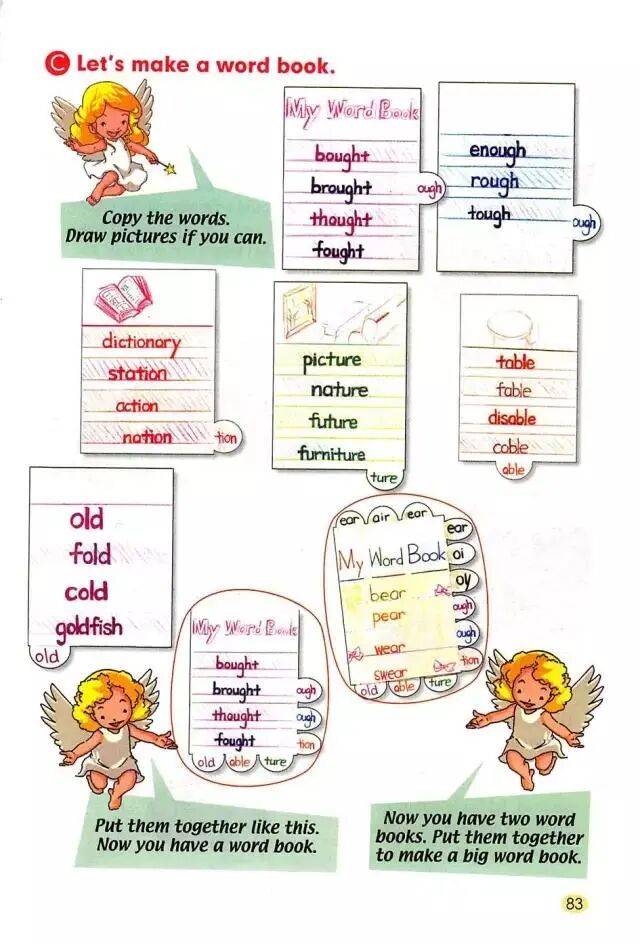 C Let's make a word book.
Copy the words.
Draw pictures if you can.
My Word Book
bought
brought
thought
fought
ough
enough
rough
tough
ough
dictionary
station
action
nation
tion
picture
nature
future
furniture
ture
table
fable
disable
coble
able
old
fold
cold
goldfish
old
My Word Book
bought
brought
thought
fought
ough
ough
tion
old able ture
ear air ear
ear
oi
oy
ough
ough
tion
My Word Book
bear
pear
wear
swear
old able ture
Put them together like this.
Now you have a word book.
Now you have two word
books. Put them together
to make a big word book.
83